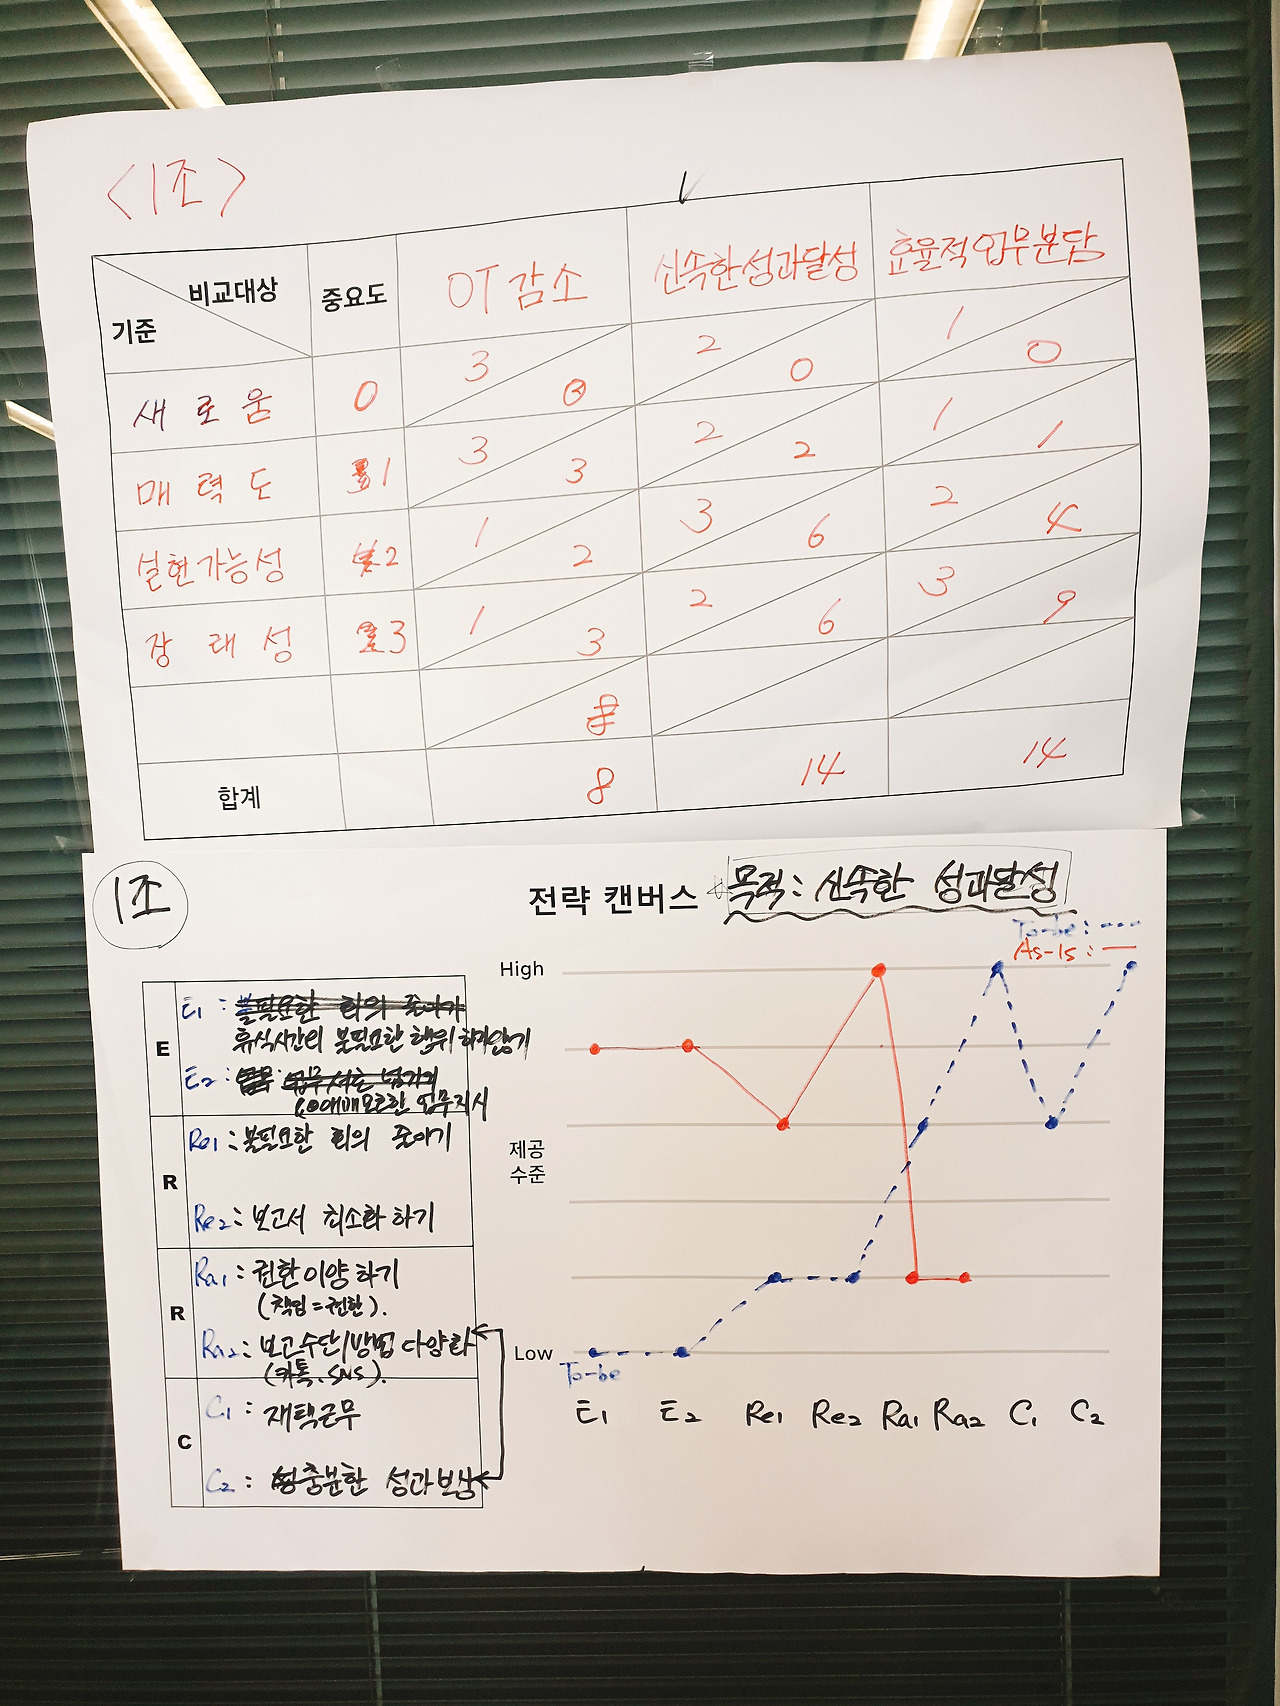 <1조>
비교대상
기준
중요도
OT 감소
신속한 성과달성
효율적 업무분담
새로움 0 3 0 2 0 1 0
매력도 1 3 3 2 2 1 1
실현가능성 2 1 2 3 6 2 4
장래성 3 1 3 2 6 3 9
합계 8 14 14
1조
전략 캔버스
목적: 신속한 성과달성
To-be: ---
As-is: —
E
E1: 불필요한 회의 줄이기
휴식시간의 불필요한 행위 하지않기
E2: 업무 서로
애매모호한 업무지시
R
Re1: 불필요한 회의 줄이기
Re2: 보고서 최소화 하기
R
Ra1: 권한이양 하기
(책임=권한).
Ra2: 보고수단/방법 다양화
(카톡, SNS).
C
C1: 재택근무
C2: 충분한 성과보상
High
제공
수준
Low
To-be
E1 E2 Re1 Re2 Ra1 Ra2 C1 C2